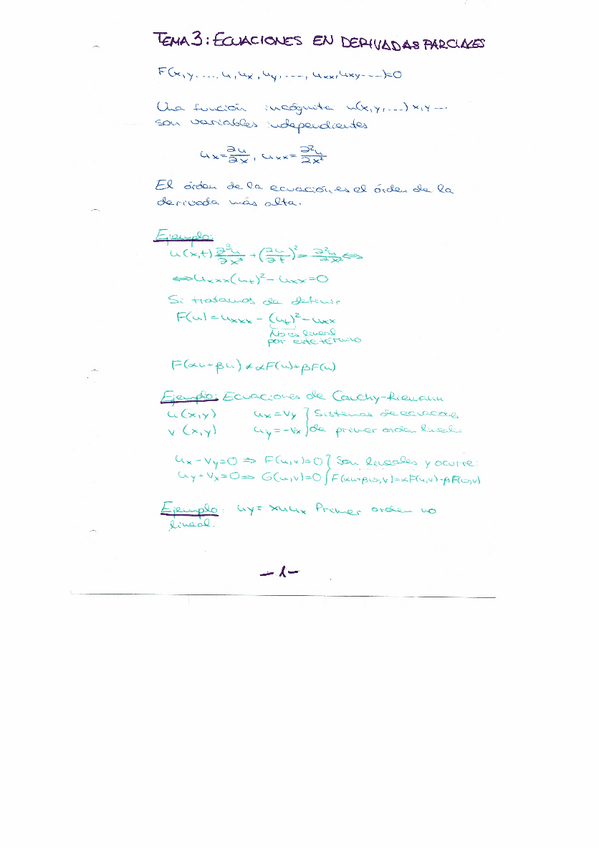 TEMA 3: ECUACIONES EN DERIVADAS PARCIALES
F(x,y,...,u,ux,uy,...,uxx,uxy...)=0
Una función incógnita u(x,y,...) x,y...
son variables independientes
ux=∂u/∂x, uxx=∂²u/∂x²
El órden de la ecuación es el órden de la
derivada más alta.
Ejemplo:
u(x,t) ∂³u/∂x³ + (∂u/∂t)² = ∂²u/∂x² ⇔
⇔ uxxx(ut)² - uxx=0
Si tratamos de definir
F(u)=uxxx - (ut)² - uxx
No es lineal
por este término
F(αu-βu)≠αF(u)+βF(u)
Ejemplo: Ecuaciones de Cauchy-Riemann
u(x,y) ux=vy } Sistemas de ecuaciones
v(x,y) uy=-vx } de primer orden lineales
ux-vy=0 ⇒ F(u,v)=0 } Son lineales y ocurre
uy+vx=0 ⇒ G(u,v)=0 } F(αu+βω,v)=αF(u,v)+βF(ω,v)
Ejemplo: uy= xuux Primer orden no
lineal.
-1-